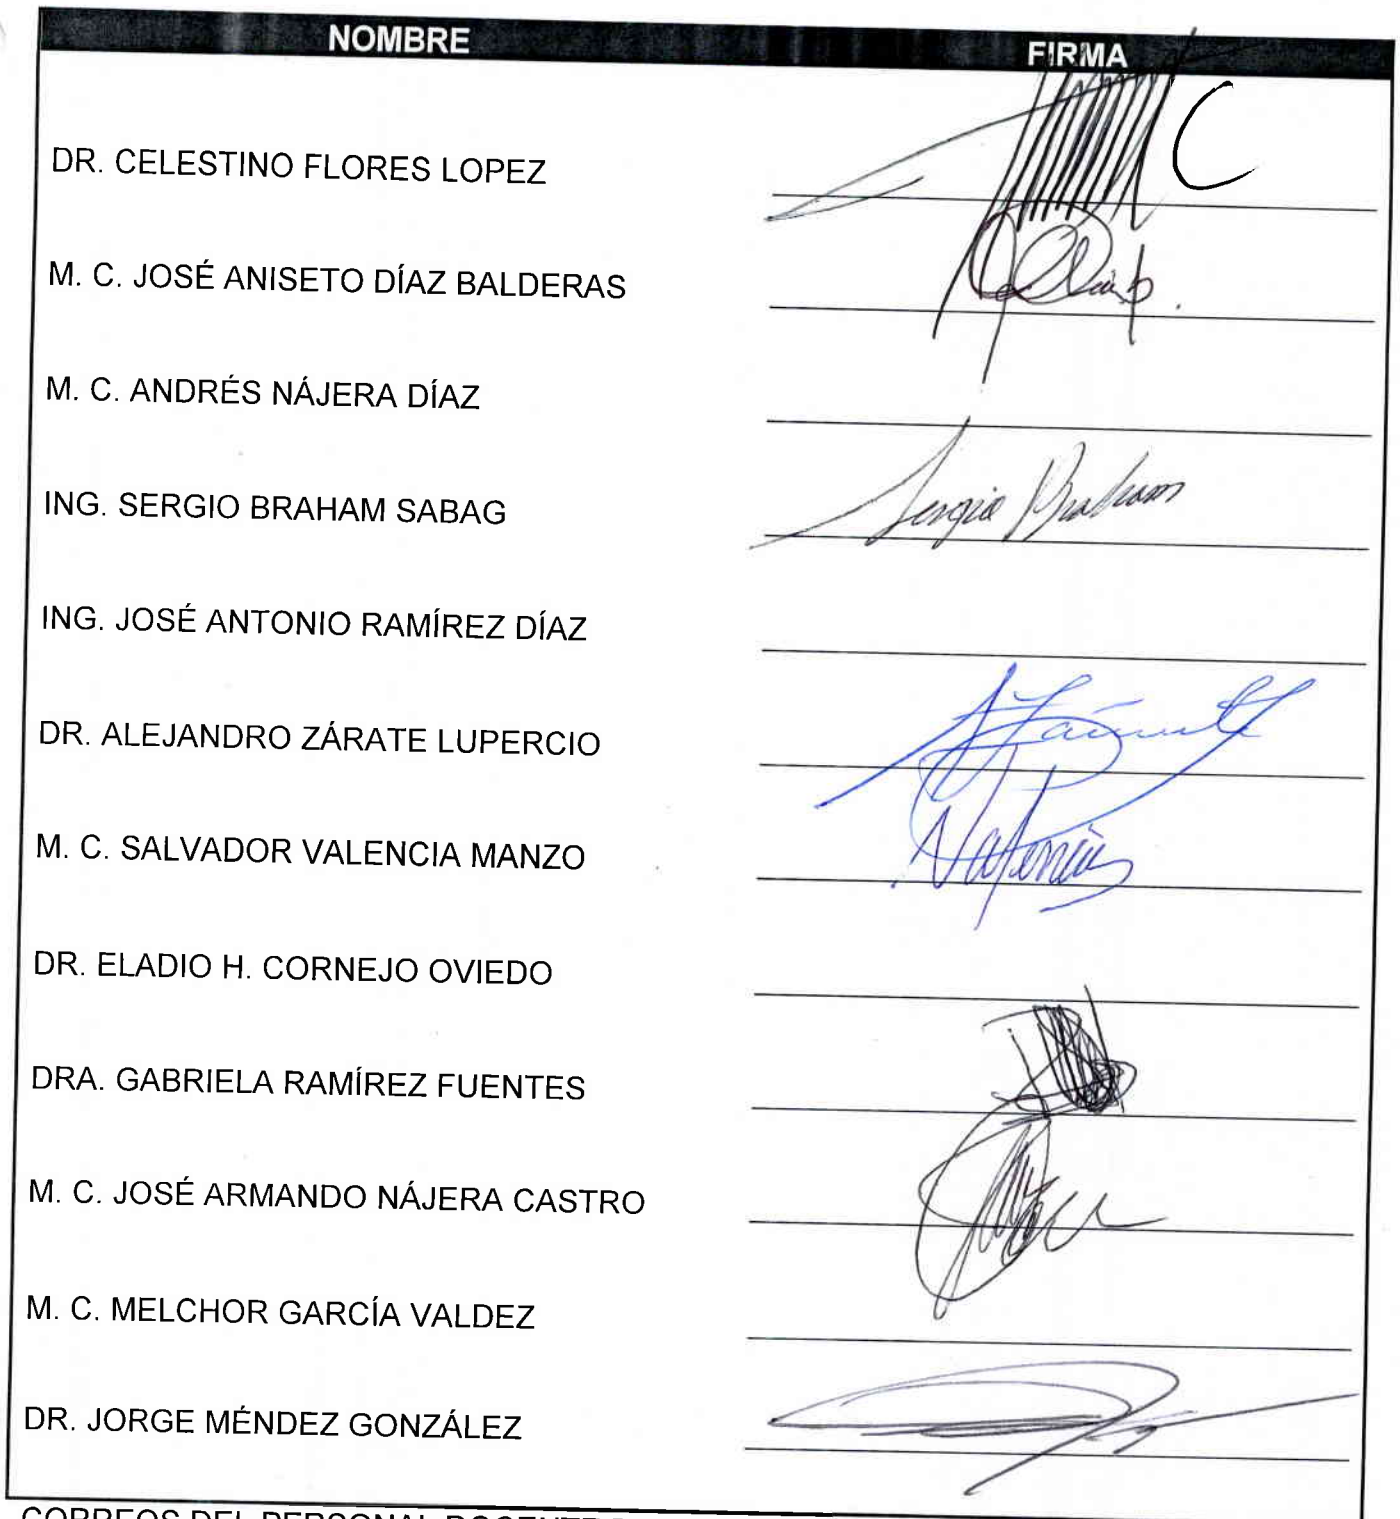 NOMBRE FIRMA
DR. CELESTINO FLORES LOPEZ
C
M. C. JOSÉ ANISETO DÍAZ BALDERAS
M. C. ANDRÉS NÁJERA DÍAZ
ING. SERGIO BRAHAM SABAG Sergio Braham
ING. JOSÉ ANTONIO RAMÍREZ DÍAZ
DR. ALEJANDRO ZÁRATE LUPERCIO
M. C. SALVADOR VALENCIA MANZO Valencia
DR. ELADIO H. CORNEJO OVIEDO
DRA. GABRIELA RAMÍREZ FUENTES
M. C. JOSÉ ARMANDO NÁJERA CASTRO
M. C. MELCHOR GARCÍA VALDEZ
DR. JORGE MÉNDEZ GONZÁLEZ
CORREOS DEL PERSONAL DOCENTE